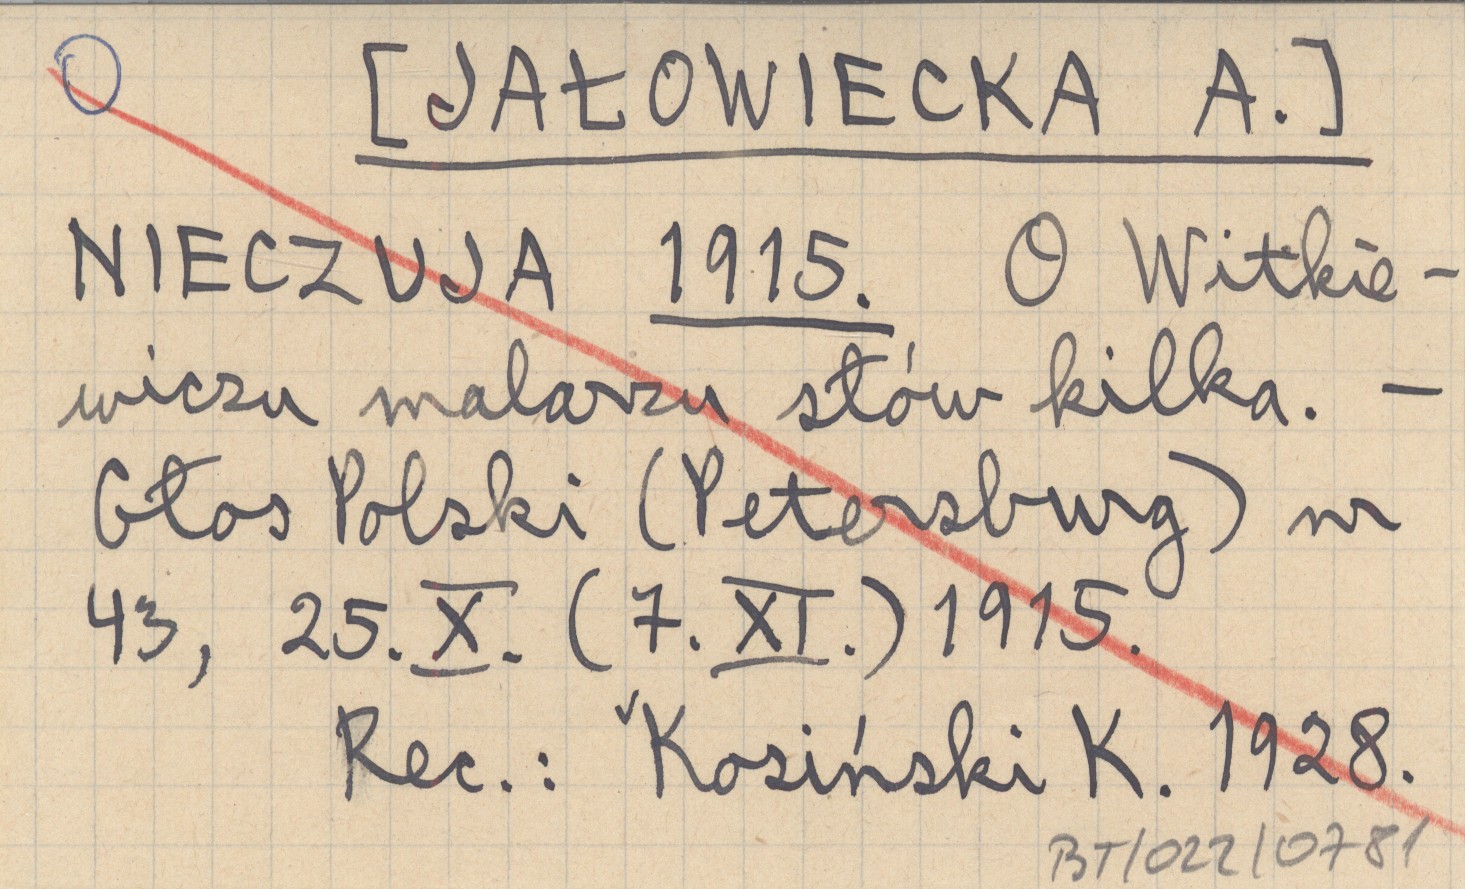 [JAŁOWIECKA A.]
NIECZUJA 1915. O Witkie-
wiczu malarzu słów kilka. —
Głos Polski (Petersburg) nr
43, 25. X. (7. XI.) 1915.
Rec.: ✓Kosiński K. 1928.
BT/022/0781